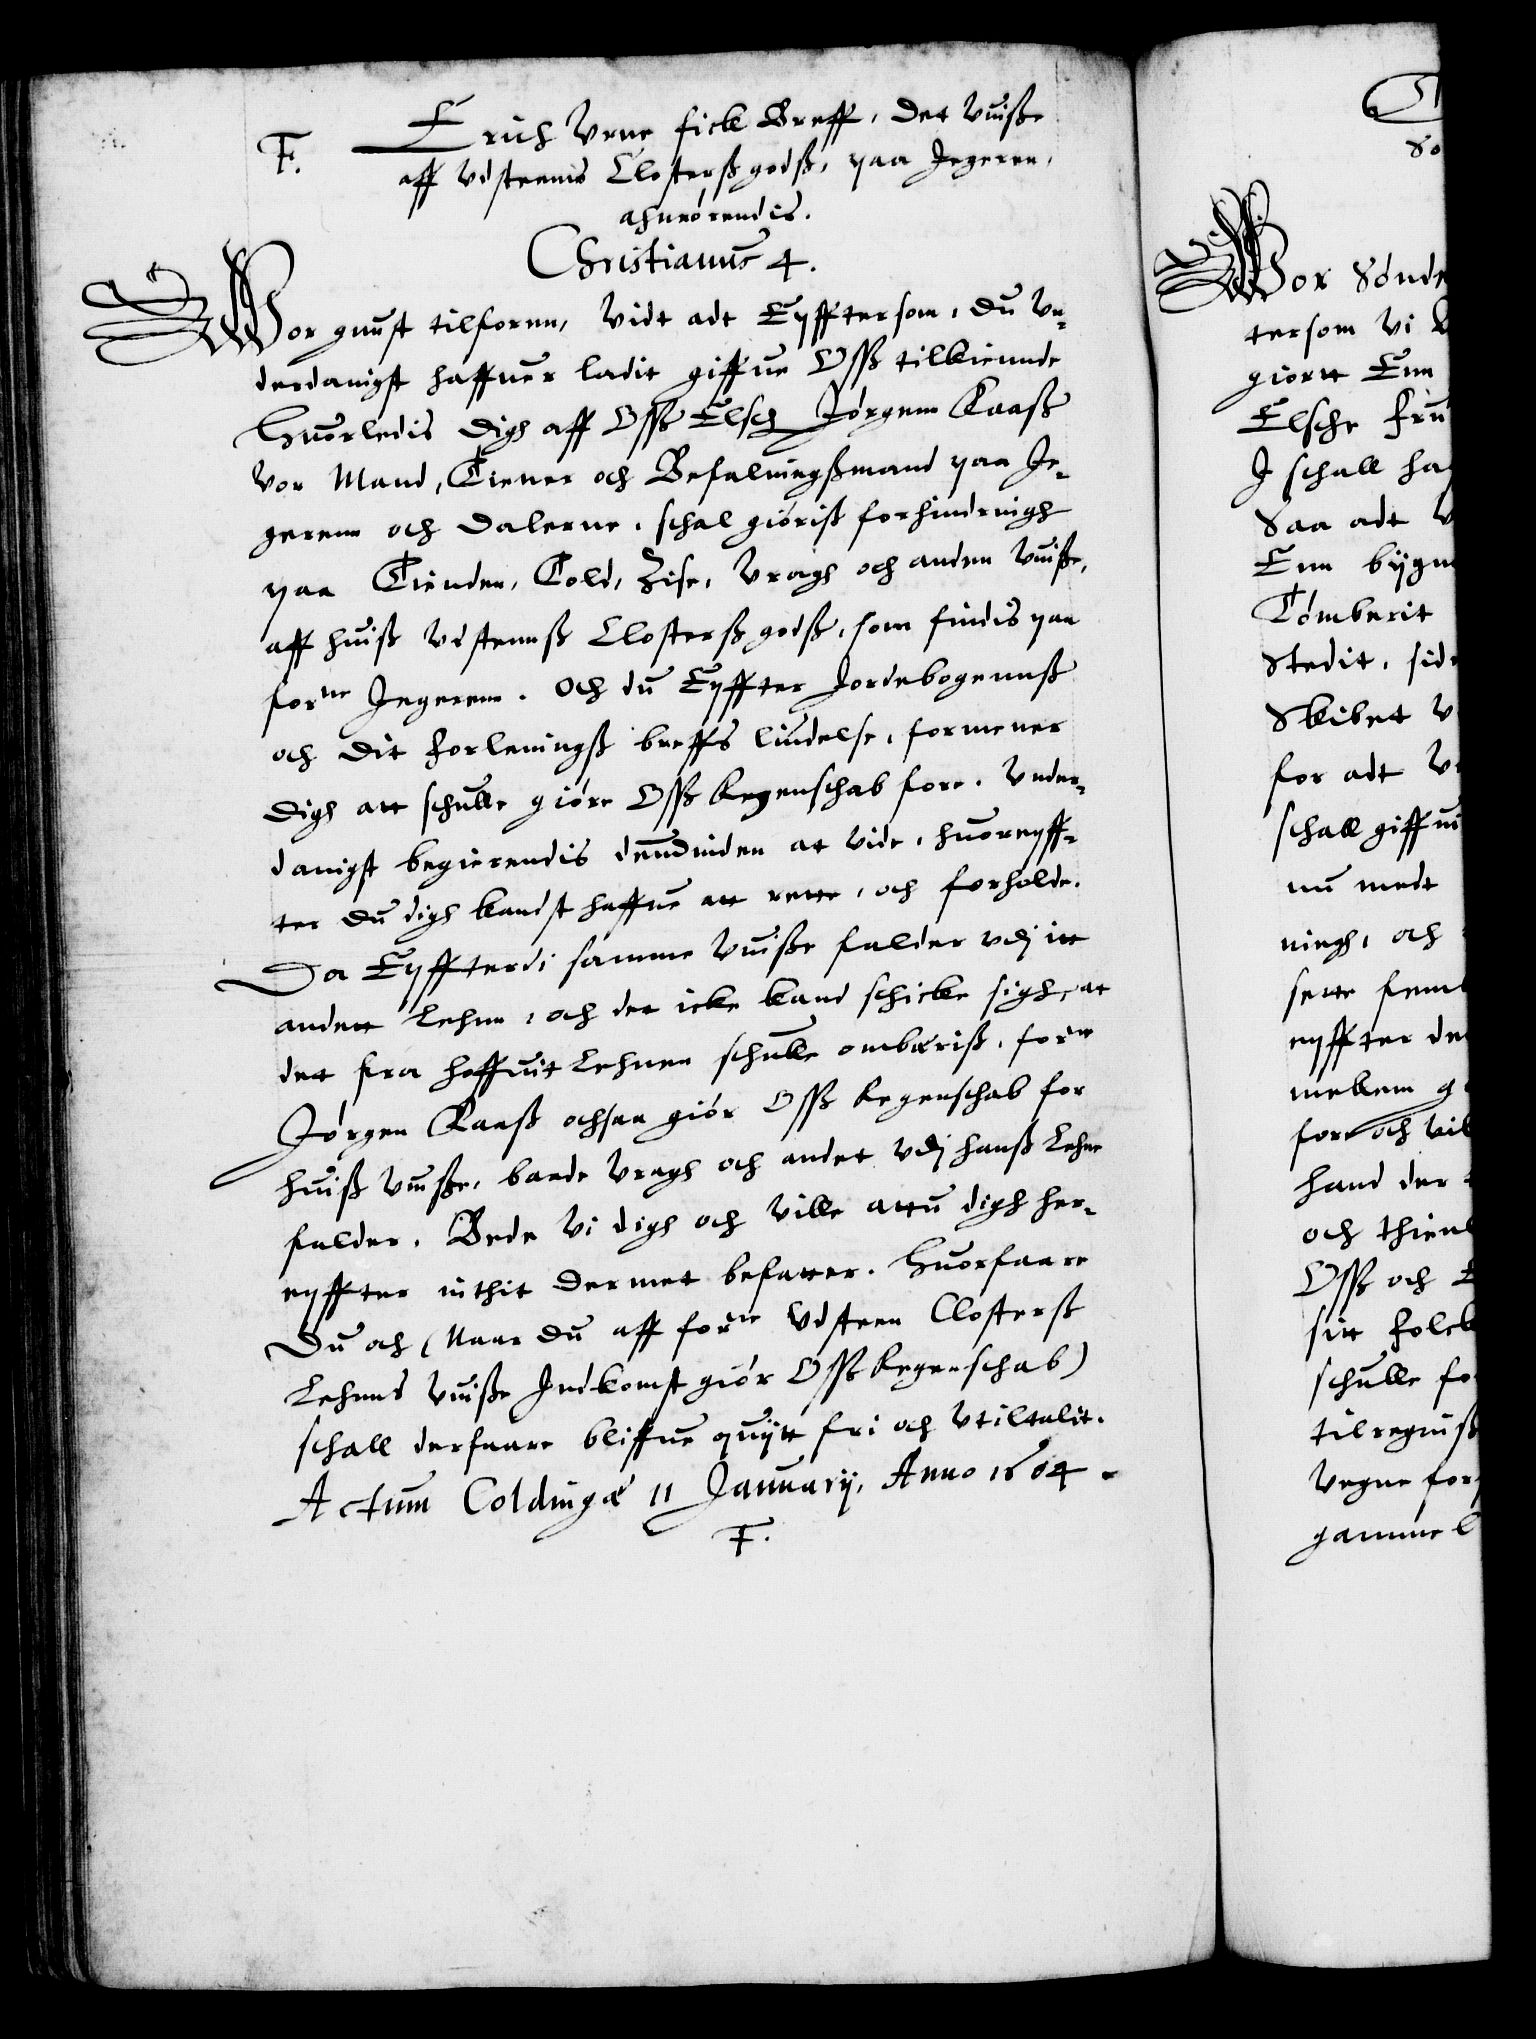 F.
Erich Vrne fick Breff, Det Vuiße
aff Vdsteens Closterß godß, paa Jegeren,
ahnrórendis.
Christianus 4.
Wor gunst tilfornn, Vidt adt Eyfftersom, du Vn,
derdanigst haffuer ladit giffue Osß tilkiennde
Huorledis digh aff Osß Elsch Jórgenn Kaaß
vor Mand, Tiener och Befalningßmand paa Je,
gerenn och Dalerne, schal gióriß forhindringh
paa Tienden, Told, Zise, Vragh och anden Vuiße,
aff huiß Vdstennß Closterß godß, som findis paa
forne Jegerenn. Och du Eyffter Jordebogennß
och Dit forleningß breffs liudelse, formener
digh att schulle gióre Osß Regenschab fore. Vnder,
danigst begierendis deundinden at vide, huoreyff,
ter du digh kandst haffue att rette, och forholde.
Da Eyffterdi samme Vuiße falder vdj itt
andett Lehnn, och det icke kand schicke sigh, at
dett fra hoffuit Lehnen schulle ombæriß, forne
Jórgen Kaaß ochsaa giór Osß Regenschab for
huiß Vuiße, baade Vragh och andet vdj hanß Lehne
falder. Bede Vi digh och Ville attu digh her,
eyffter inthit dermet befatter. Huorfaare
Du och (Naar du aff forne Vdsteen Closterß
Lehnns Vuiße Indkomst giór Osß Regenschab)
schall derfaare bliffue quijtt fri och Vtiltalit.
Actum Coldingæ 11 January, Anno 1604.
F.
So
Wor Sónde
tersom Vi
giortt Enn
Elsche fru
J schall ha
Saa adt
Enn bygn
Tómberit
Stedit, sid
Skibet
for adt
schall giffui
nu medt
ningh, och
sette frem
eyffter de
mellem
fore och vil
hand der
och thien
Osß och
sitt folck
schulle fo
tilregniß
vegne for
gammel